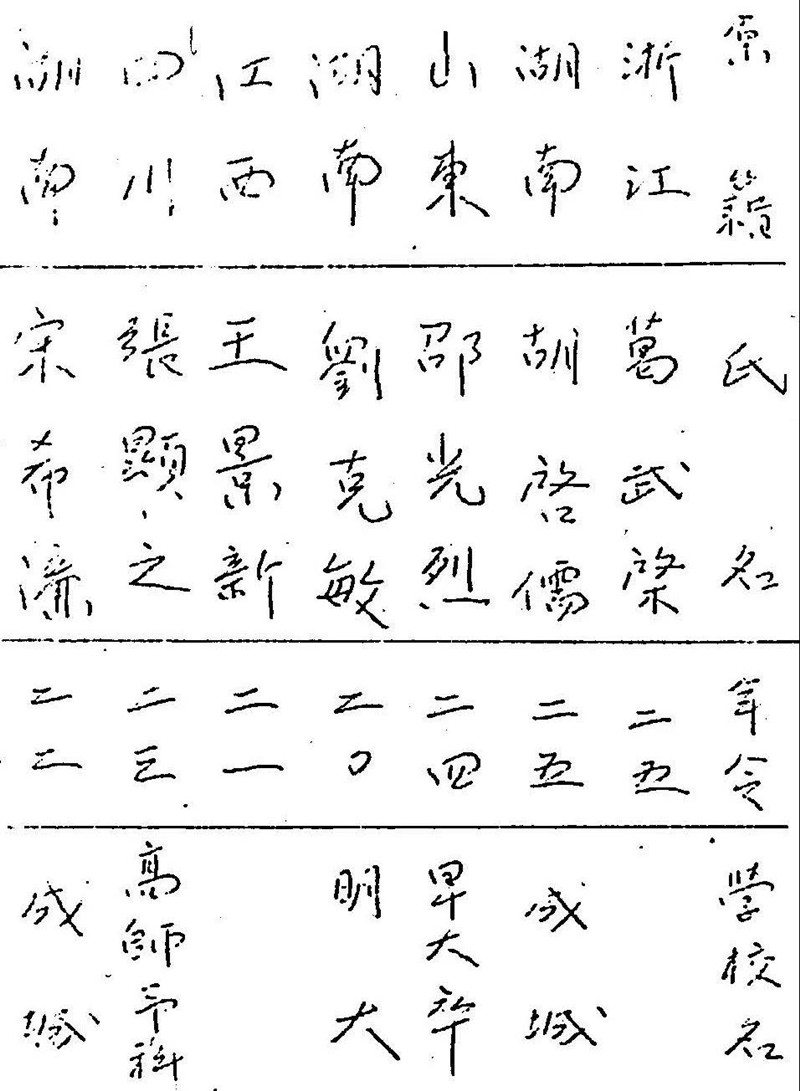 原籍 氏名 年令 學校名
浙江 葛武棨 二五
湖南 胡啓儒 二五 成城
山東 邵光烈 二四 早大卒
湖南 劉克敏 二〇 明大
江西 王景新 二一
四川 張顯之 二三 高師予科
湖南 宋希濂 二二 成城